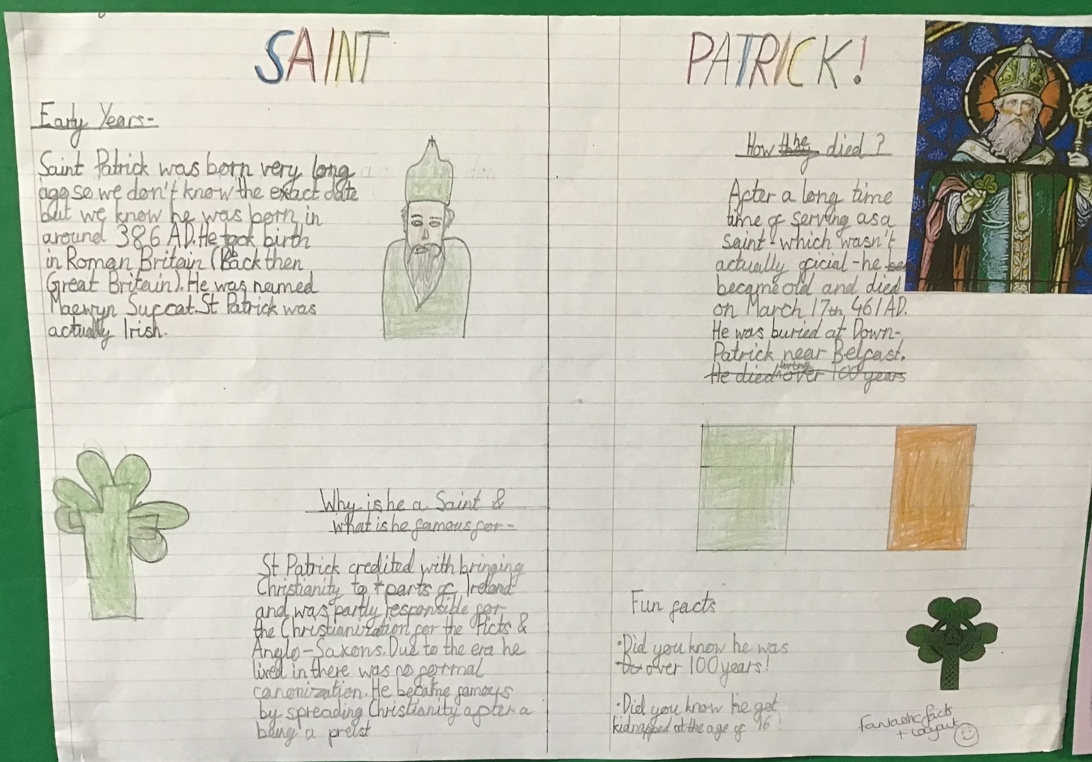 SAINT
PATRICK!
Early Years-
Saint Patrick was born very long
ago so we don't know the exact date
but we know he was born in
around 386 AD. He took birth
in Roman Britain (Back then
Great Britain). He was named
Maewyn Succat. St Patrick was
actually Irish.
Why is he a Saint &
what is he famous for-
St Patrick credited with bringing
Christianity to parts of Ireland
and was partly responsible for
the Christianization for the Picts &
Anglo-Saxons. Due to the era he
lived in there was no formal
canonization. He became famous
by spreading Christianity after a
being a preist
How the died?
After a long time
time of serving as a
saint - which wasn't
actually oficial - he be
became old and died
on March 17th, 461 AD.
He was buried at Down-
Patrick near Belfast.
He died living over 100 years
Fun facts
•Did you know he was
over 100 years!
•Did you know he got
kidnapped at the age of 16!
Fantastic facts
+ layout